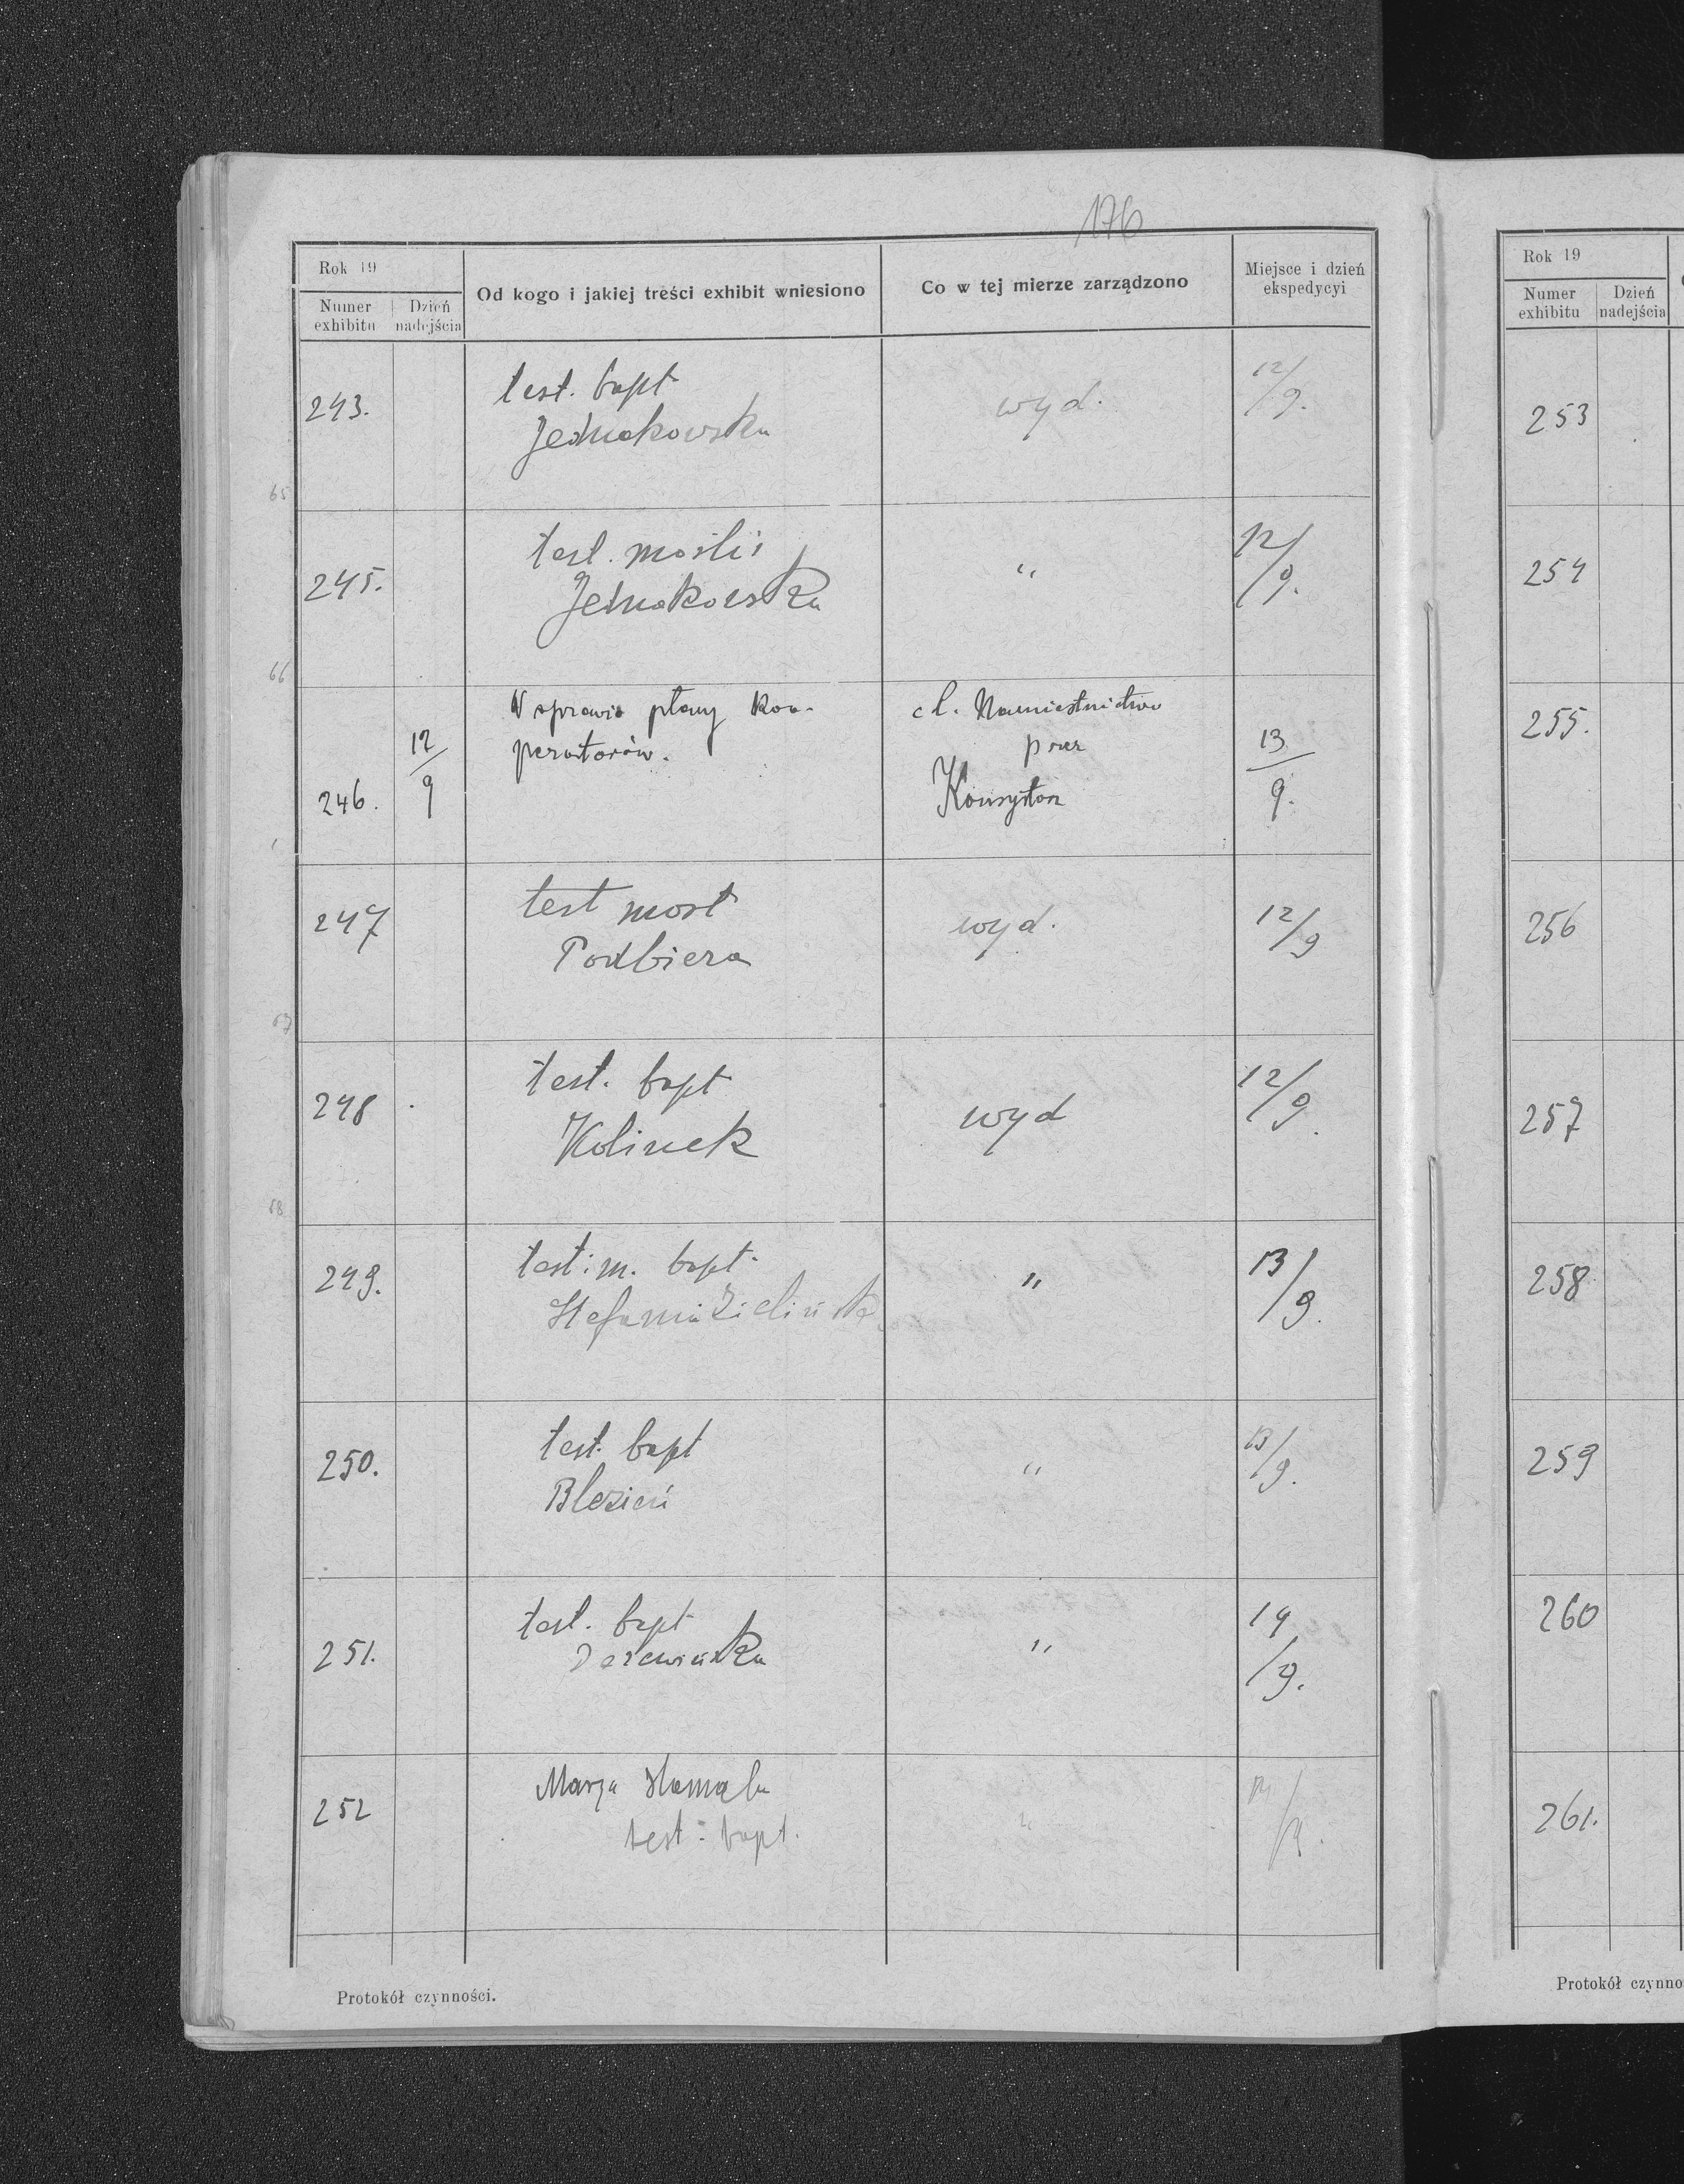 176
Rok 19
Numer exhibitu
Dzień nadejścia
Od kogo i jakiej treści exhibit wniesiono
Co w tej mierze zarządzono
Miejsce i dzień ekspedycyi
243.
test. bapt
wyd.
12/9.
Jednakowska
65
245.
test.
"
12/9.
Jednakowska
66
246.
12/9
W sprawie płacy koo-
peratorów.
c k. Namiestnictwo
przez
Konsystorz
13/9.
247
test mort
wyd.
12/9
Podbiera
67
248
test. bapt
wyd
12/9.
Kolinek
68
249.
testim. bapt.
"
13/9.
Stefania Zielińska
250.
test. bapt
"
13/9.
Blezień
251.
test. bapt
"
14/9.
252
Marya
"
test. bapt.
Protokół czynności.
Rok 19
Numer exhibitu
Dzień nadejścia
253
254
255.
256
257
258
259
260
261.
Protokół czynno